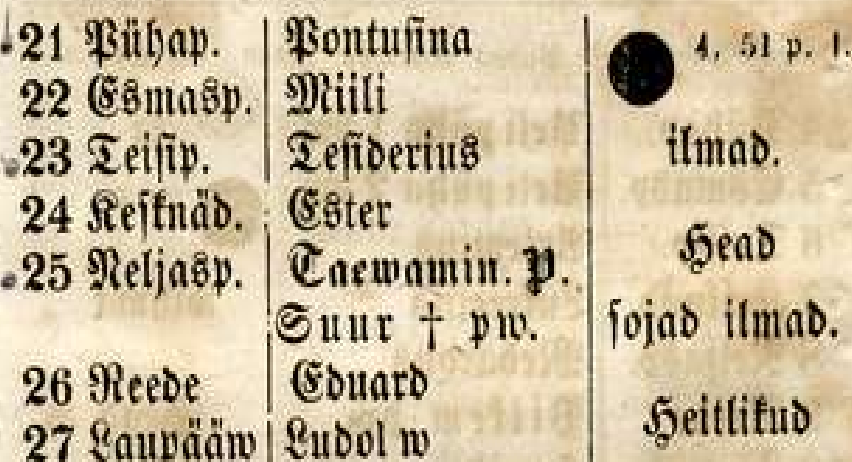 21 Pühap. Pontusina 4, 51 p. l.
22 Esmasp. Miili
23 Teisip. Tesiderius ilmad.
24 Kesknäd. Ester
Head
25 Neljasp. Taewamin. P.
Suur † pw. sojad ilmad.
26 Reede Eduard
Heitlikud
27 Laupääw Ludol w